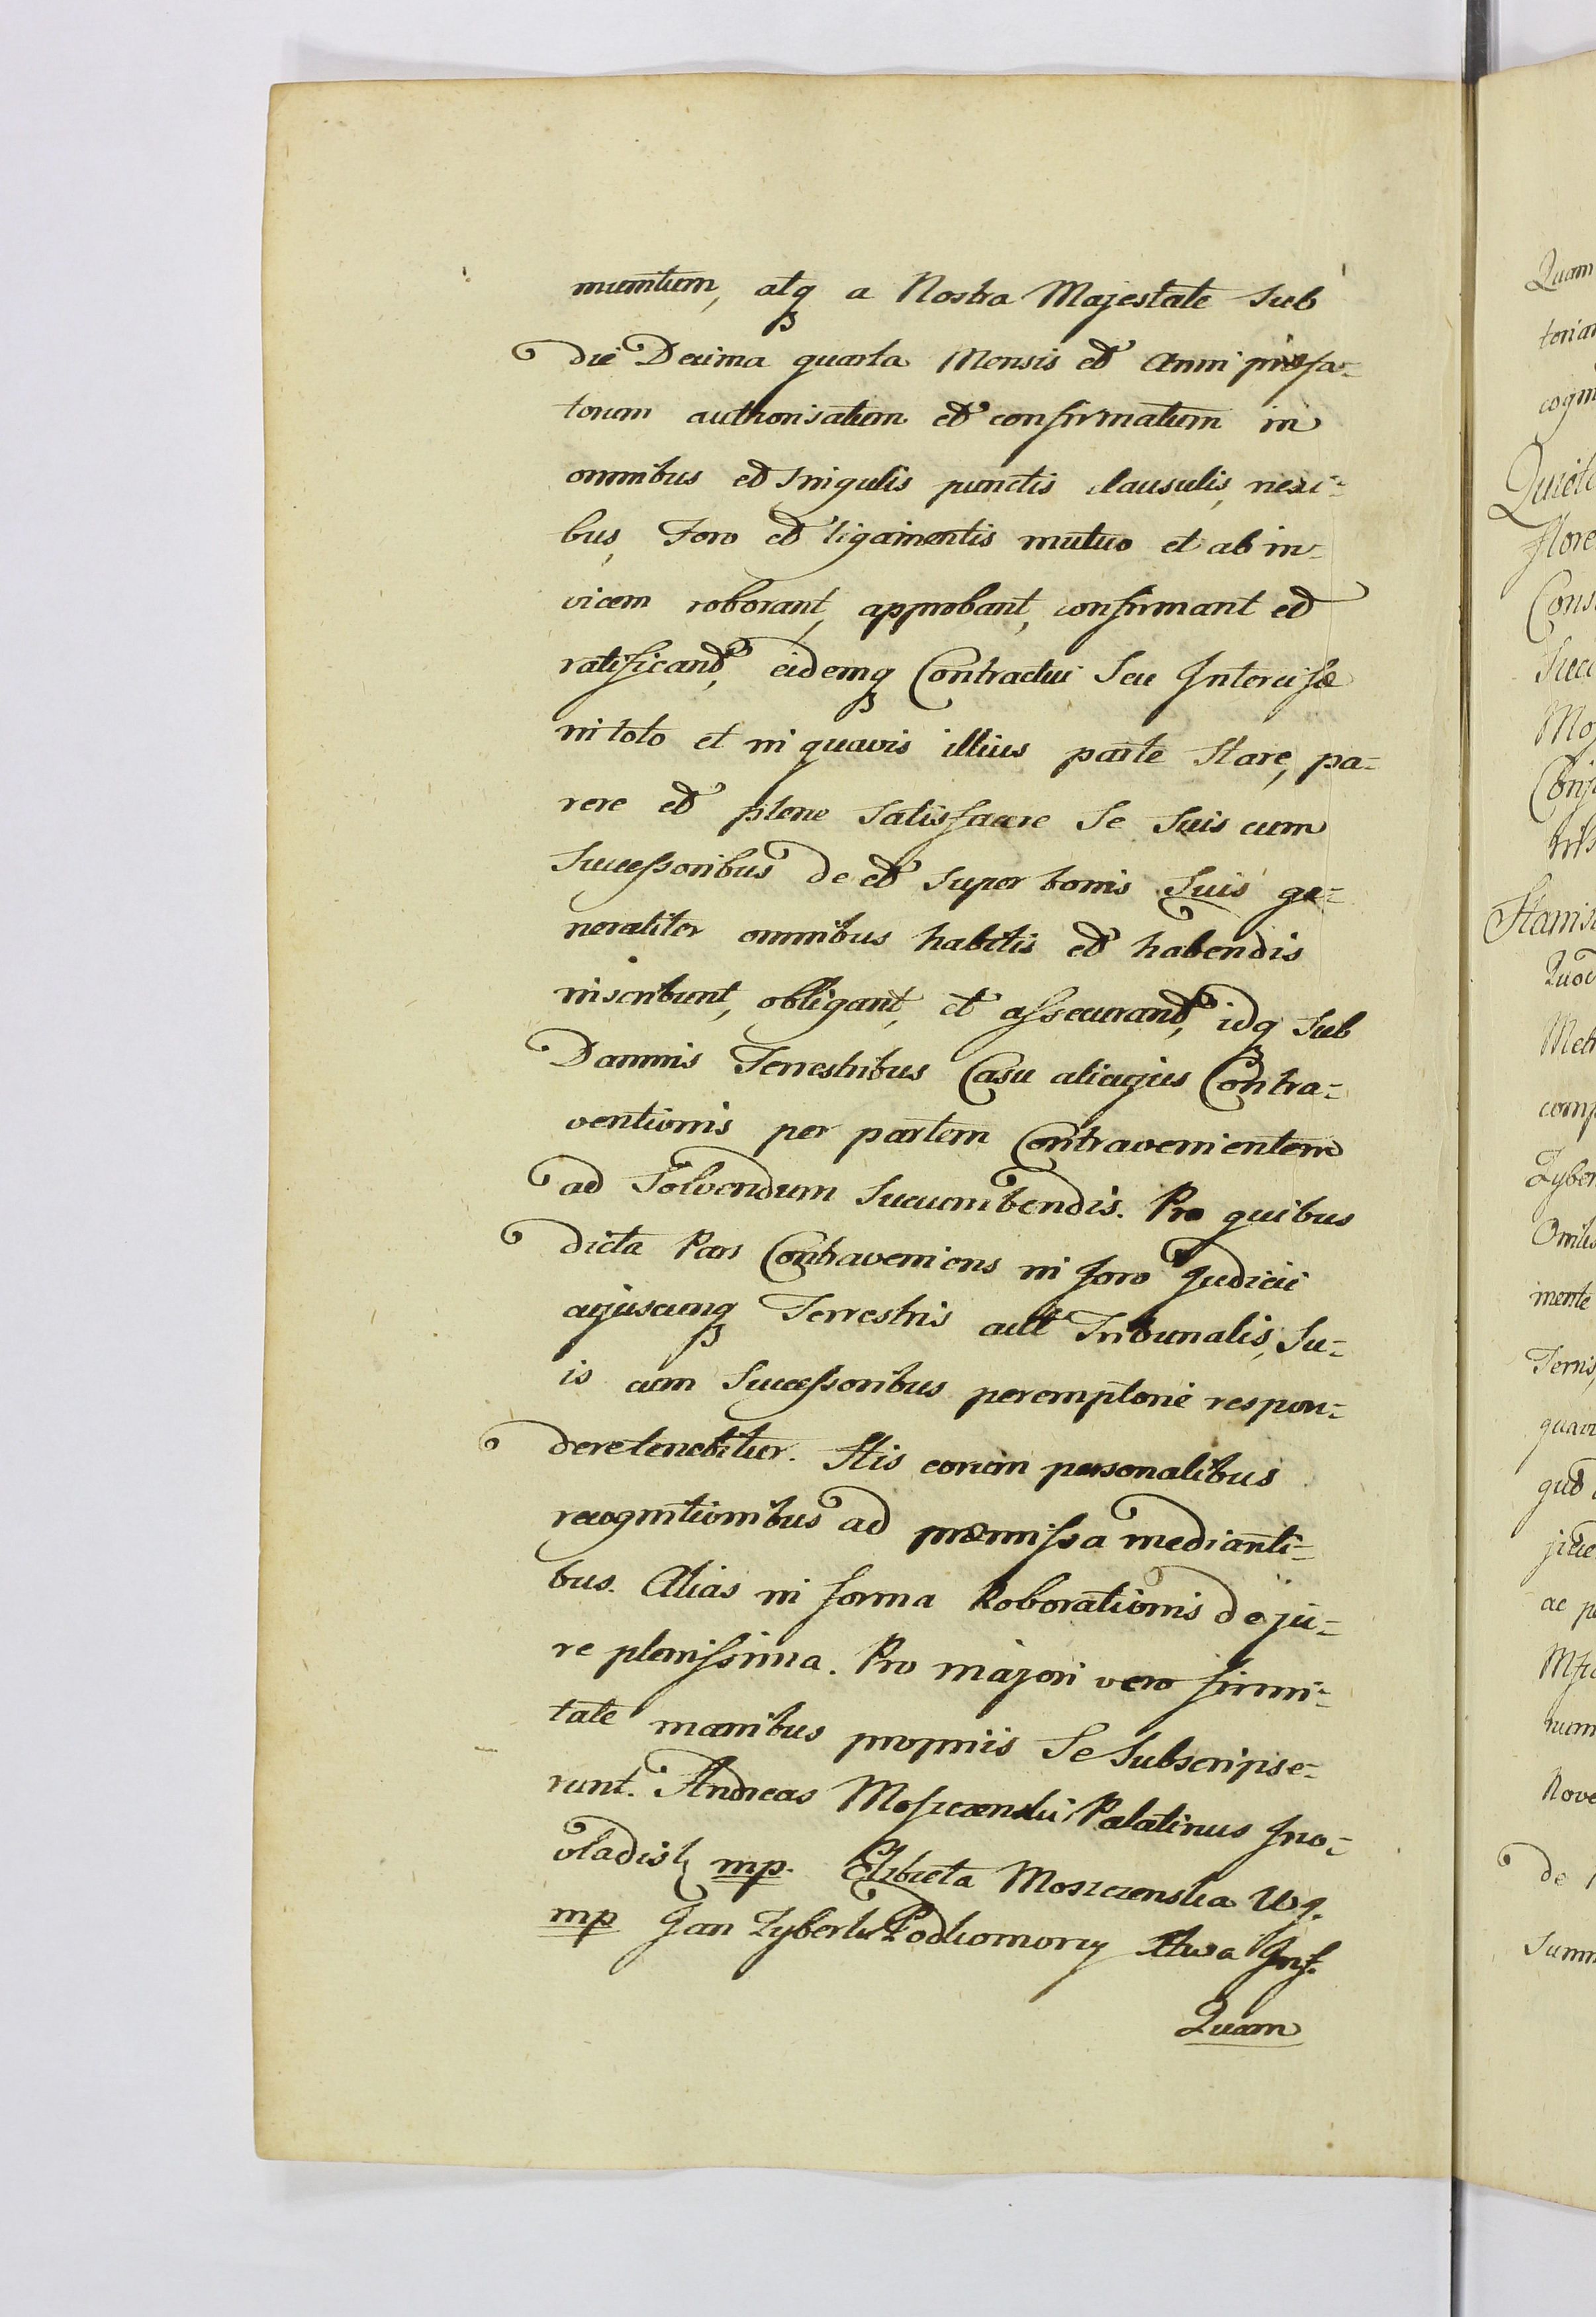 munitum, atq₃ a Nostra Majestate sub
die Decima quarta Mensis et Anni præfa-
torum authorisatum et confirmatum in
omnibus et singulis punctis clausulis, nexi-
bus, Foro et ligamentis mutuo et ab in-
vicem roborant, approbant, confirmant et
ratificant, eidemq₃ Contractui Seu Intercisæ
in toto et in quavis illius parte Stare, pa-
rere et plene Satisfacere Se Suis cum
Successoribus de et super bonis Suis ge-
neraliter omnibus habitis et habendis
inscribunt, obligant, et assecurant, idq₃ sub
Damnis Terrestribus Casu alicujus Contra-
ventionis per partem Contravenientem
ad Solvendum Sucumbendis. Pro quibus
dicta Pars Contraveniens in foro Judicii
cujuscunq₃ Terrestris aut Tribunalis, Su-
is cum Successoribus peremptorie respon-
dere tenebitur. Stis eorum personalibus
recognitionibus ad præmissa medianti-
bus. Alias in forma Roborationis de ju-
re plenissima. Pro majori vero firmi-
tate manibus propriis Se Subscripse-
runt. Andreas Moszczenski Palatinus Jno-
vladisl. mp. Elzbieta Moszczenska W J.
mp Jan Zyberk Podkomorzy Xtwa Inf.
Quam
Quam
cogni
Cons
Succ
Mos
Stanis
Quod
Metr
comp
Zyber
mente
ac pe
Nove
de
Summ